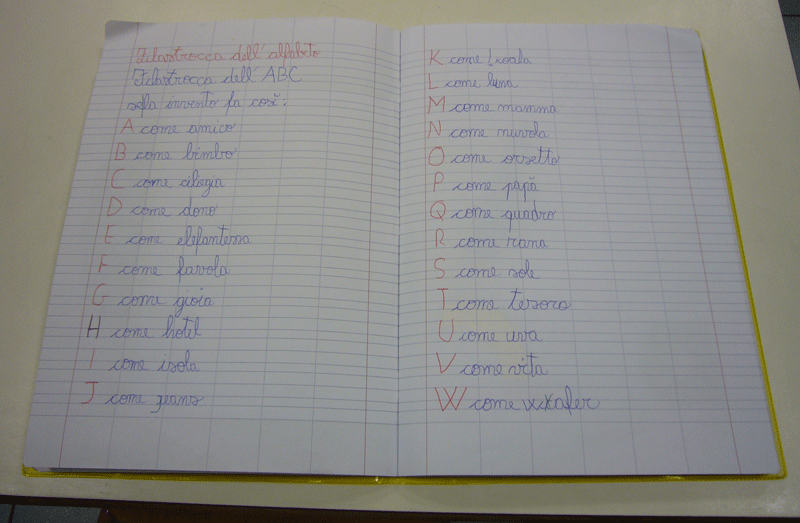 Filastrocca dell'alfabeto
Filastrocca dell'ABC
invento fa così:
A come amico
B come bimbo
C come ciliegia
D come dono
E come elefantessa
F come favola
G come gioia
H come hotel
I come isola
J come jeans
K come koala
L come luna
M come mamma
N come nuvola
O come orsetto
P come papà
Q come quadro
R come rana
S come sole
T come tesoro
U come uva
V come vita
W come